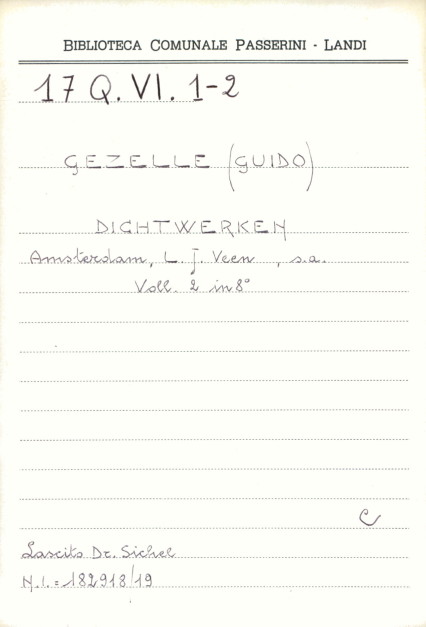 BIBLIOTECA COMUNALE PASSERINI - LANDI
17 Q. VI. 1-2
GEZELLE (GUIDO)
DICHTWERKEN
Amsterdam, L. J. Veen , s.a.
Voll. 2 in 8°
C
Lascito Dr. Sichel
N.I. = 182918/19